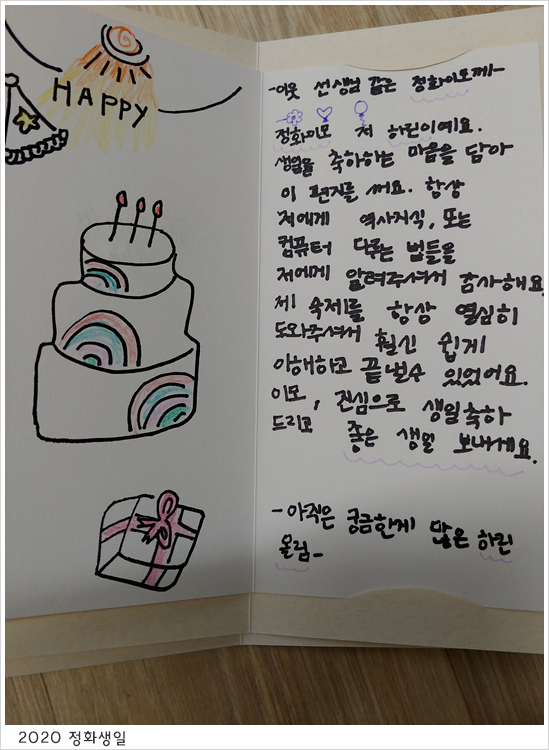 HAPPY
-이웃 선생님 같은 정화이모께-
정화이모 저 하린이예요.
생일을 축하하는 마음을 담아
이 편지를 써요. 항상
저에게 역사지식, 또는
컴퓨터 다루는 법들을
저에게 알려주셔서 감사해요.
제 숙제를 항상 열심히
도와주셔서 훨신 쉽게
이해하고 끝낼수 있었어요.
이모, 진심으로 생일축하
드리고 좋은 생일 보내세요.
-아직은 궁금한게 많은 하린
올림-
2020 정화생일